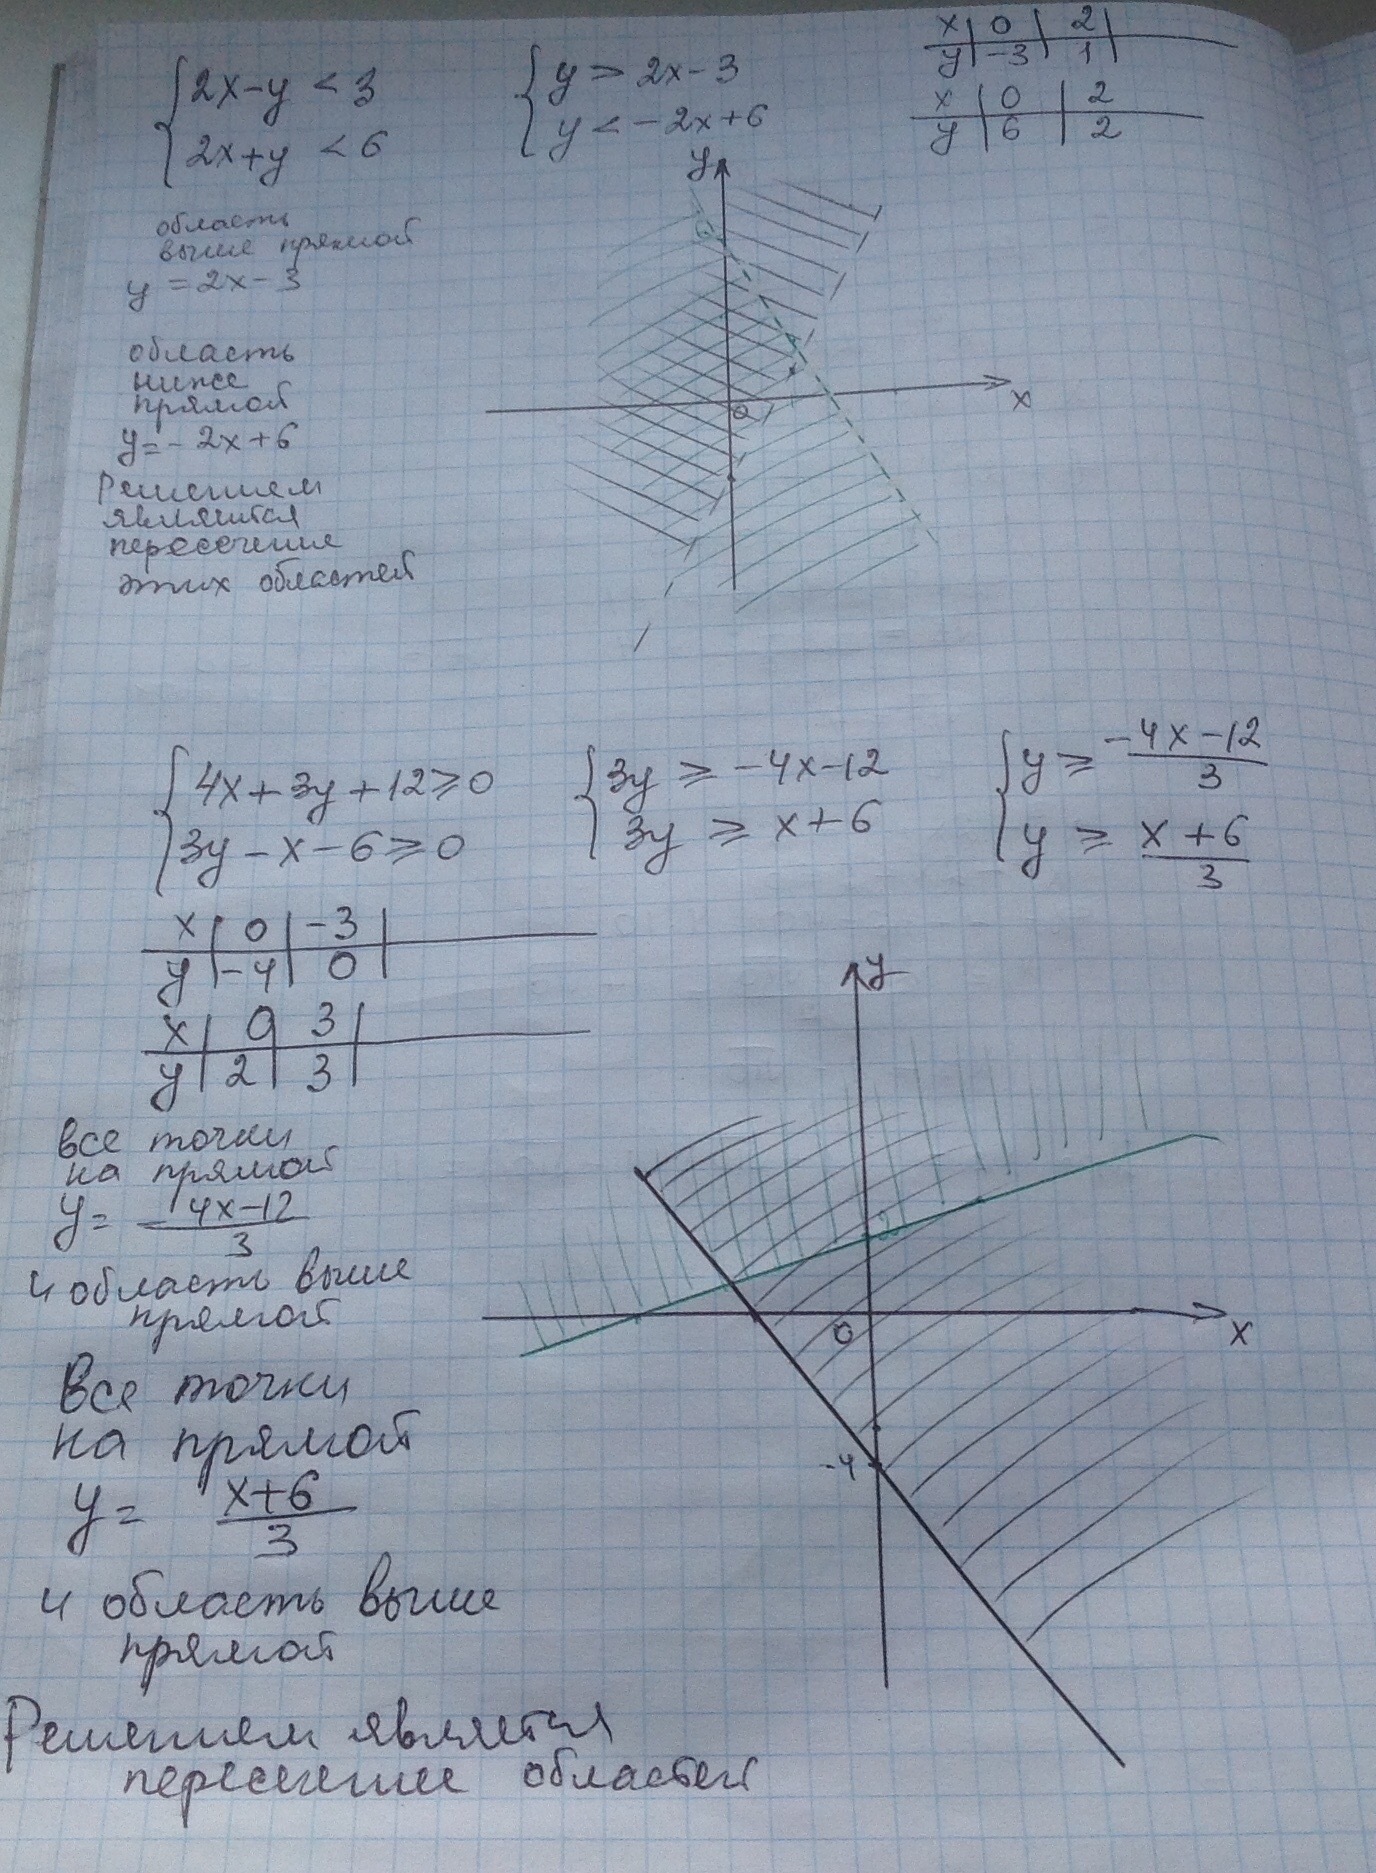 2x-y < 3
2x+y < 6
y > 2x-3
y < -2x+6
x | 0 | 2 |
y | -3 | 1 |
x | 0 | 2
y | 6 | 2
область
выше прямой
y = 2x-3
область
ниже
прямой
y = -2x+6
Решением
является
пересечение
этих областей
y
6
0
x
4x+3y+12≥0
3y-x-6≥0
3y ≥ -4x-12
3y ≥ x+6
y ≥ -4x-12 / 3
y ≥ x+6 / 3
x | 0 | -3 |
y | -4 | 0 |
x | 0 | 3 |
y | 2 | 3 |
все точки
на прямой
y = -4x-12 / 3
и область выше
прямой
Все точки
на прямой
y = x+6 / 3
и область выше
прямой
Решением является
пересечение областей
y
2
0
x
-4